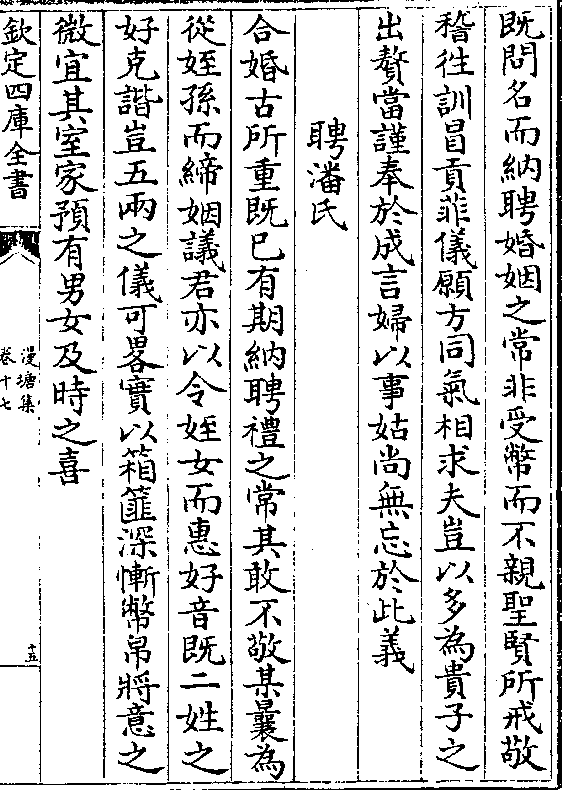 既問名而納聘婚姻之常非受幣而不親聖賢所戒敬
稽往訓冒貢菲儀願方同氣相求夫豈以多為貴子之
出贅當謹奉於成言婦以事姑尚無忘於此義
聘潘氏
合婚古所重既已有期納聘禮之常其敢不敬某曩為
從姪孫而締姻議君亦以令姪女而惠好音既二姓之
好克諧豈五兩之儀可畧實以箱篚深慚幣帛將意之
微宜其室家預有男女及時之喜
欽定四庫全書
漫塘集
卷十七
十五